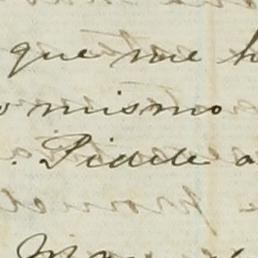 que me h
o mismo
. Pidele a